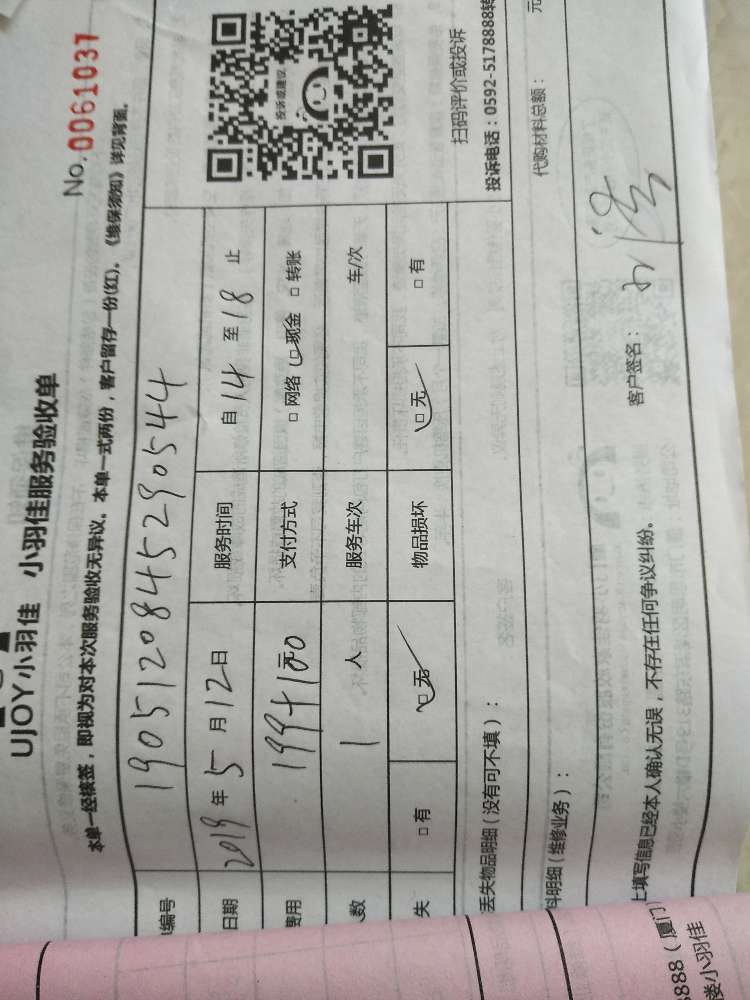 No.0061037
UJOY小羽佳 小羽佳服务验收单
本单一经核签，即视为对本次服务验收无异议。本单一式两份，客户留存一份(红)。《维保须知》详见背面。
编号 190512084529 0544
日期 2019年5月12日 服务时间 自14至18止
费用 199+100元 支付方式 □网络 □现金 □转账
数 1人 服务车次 车/次
失 □有 □无 物品损坏 □无 □有
投诉或建议
扫码评价或投诉
投诉电话：0592-5178888转
丢失物品明细（没有可不填）：
料明细（维修业务）： 代购材料总额： 元
上填写信息已经本人确认无误，不存在任何争议纠纷。 客户签名：
888（厦门
楼小羽佳